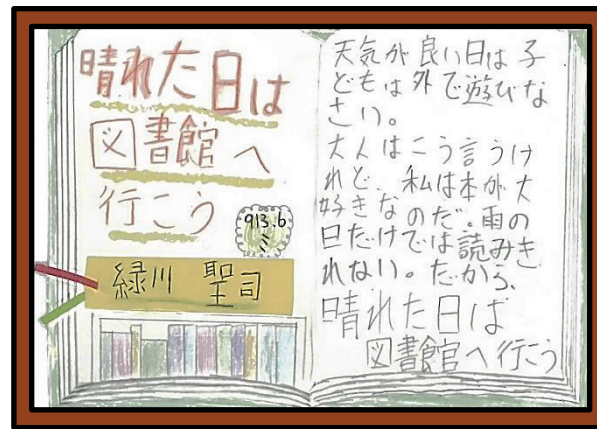 晴れた日は
図書館へ
行こう
913.6
ミ
緑川 聖司
天気が良い日は子
どもは外で遊びな
さい。
大人はこう言うけ
れど、私は本が大
好きなのだ。雨の
日だけでは読みき
れない。だから、
晴れた日は
図書館へ行こう